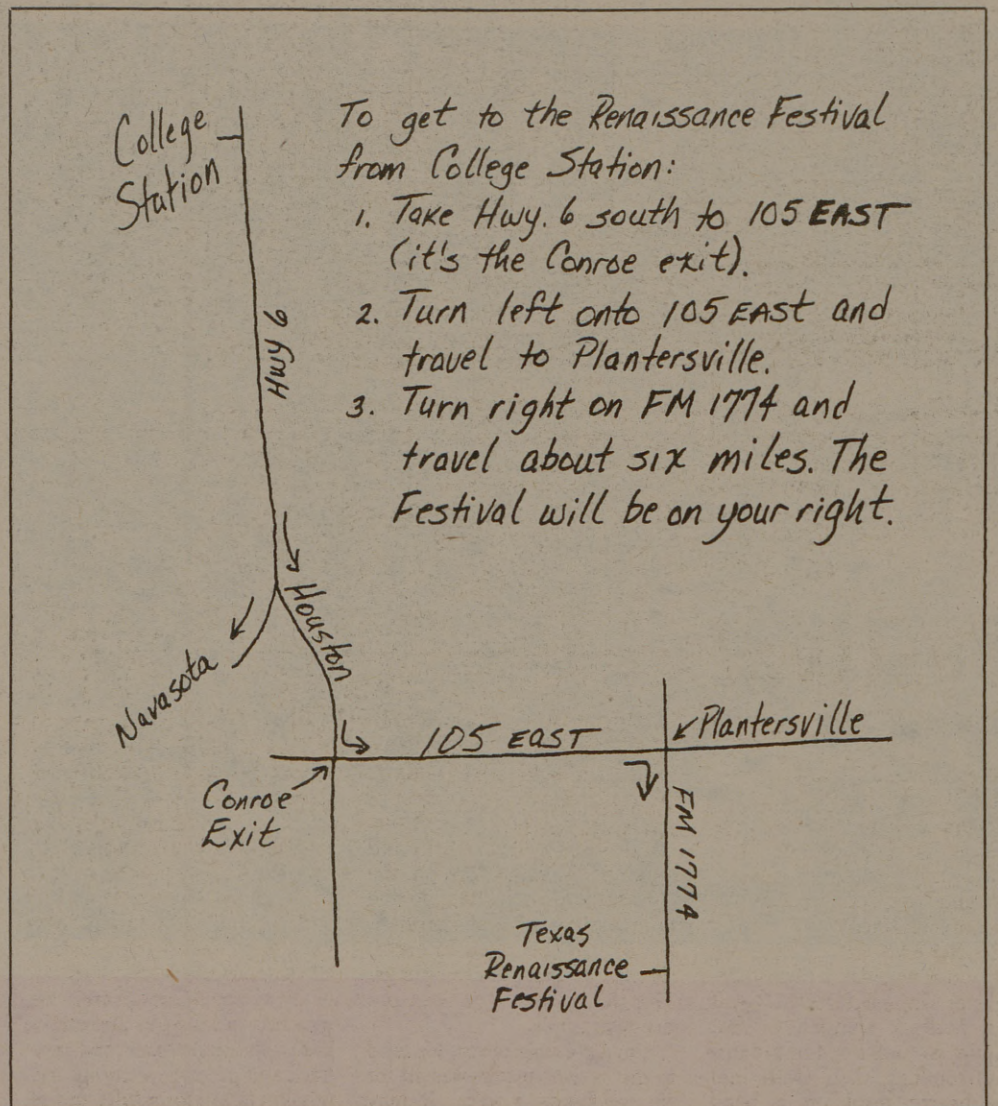 College
Station
To get to the Renaissance Festival
from College Station:
1. Take Hwy. 6 south to 105 EAST
(it's the Conroe exit).
2. Turn left onto 105 EAST and
travel to Plantersville.
3. Turn right on FM 1774 and
travel about six miles. The
Festival will be on your right.
Hwy 6
Houston
Navasota
105 EAST
Plantersville
Conroe
Exit
FM 1774
Texas
Renaissance
Festival